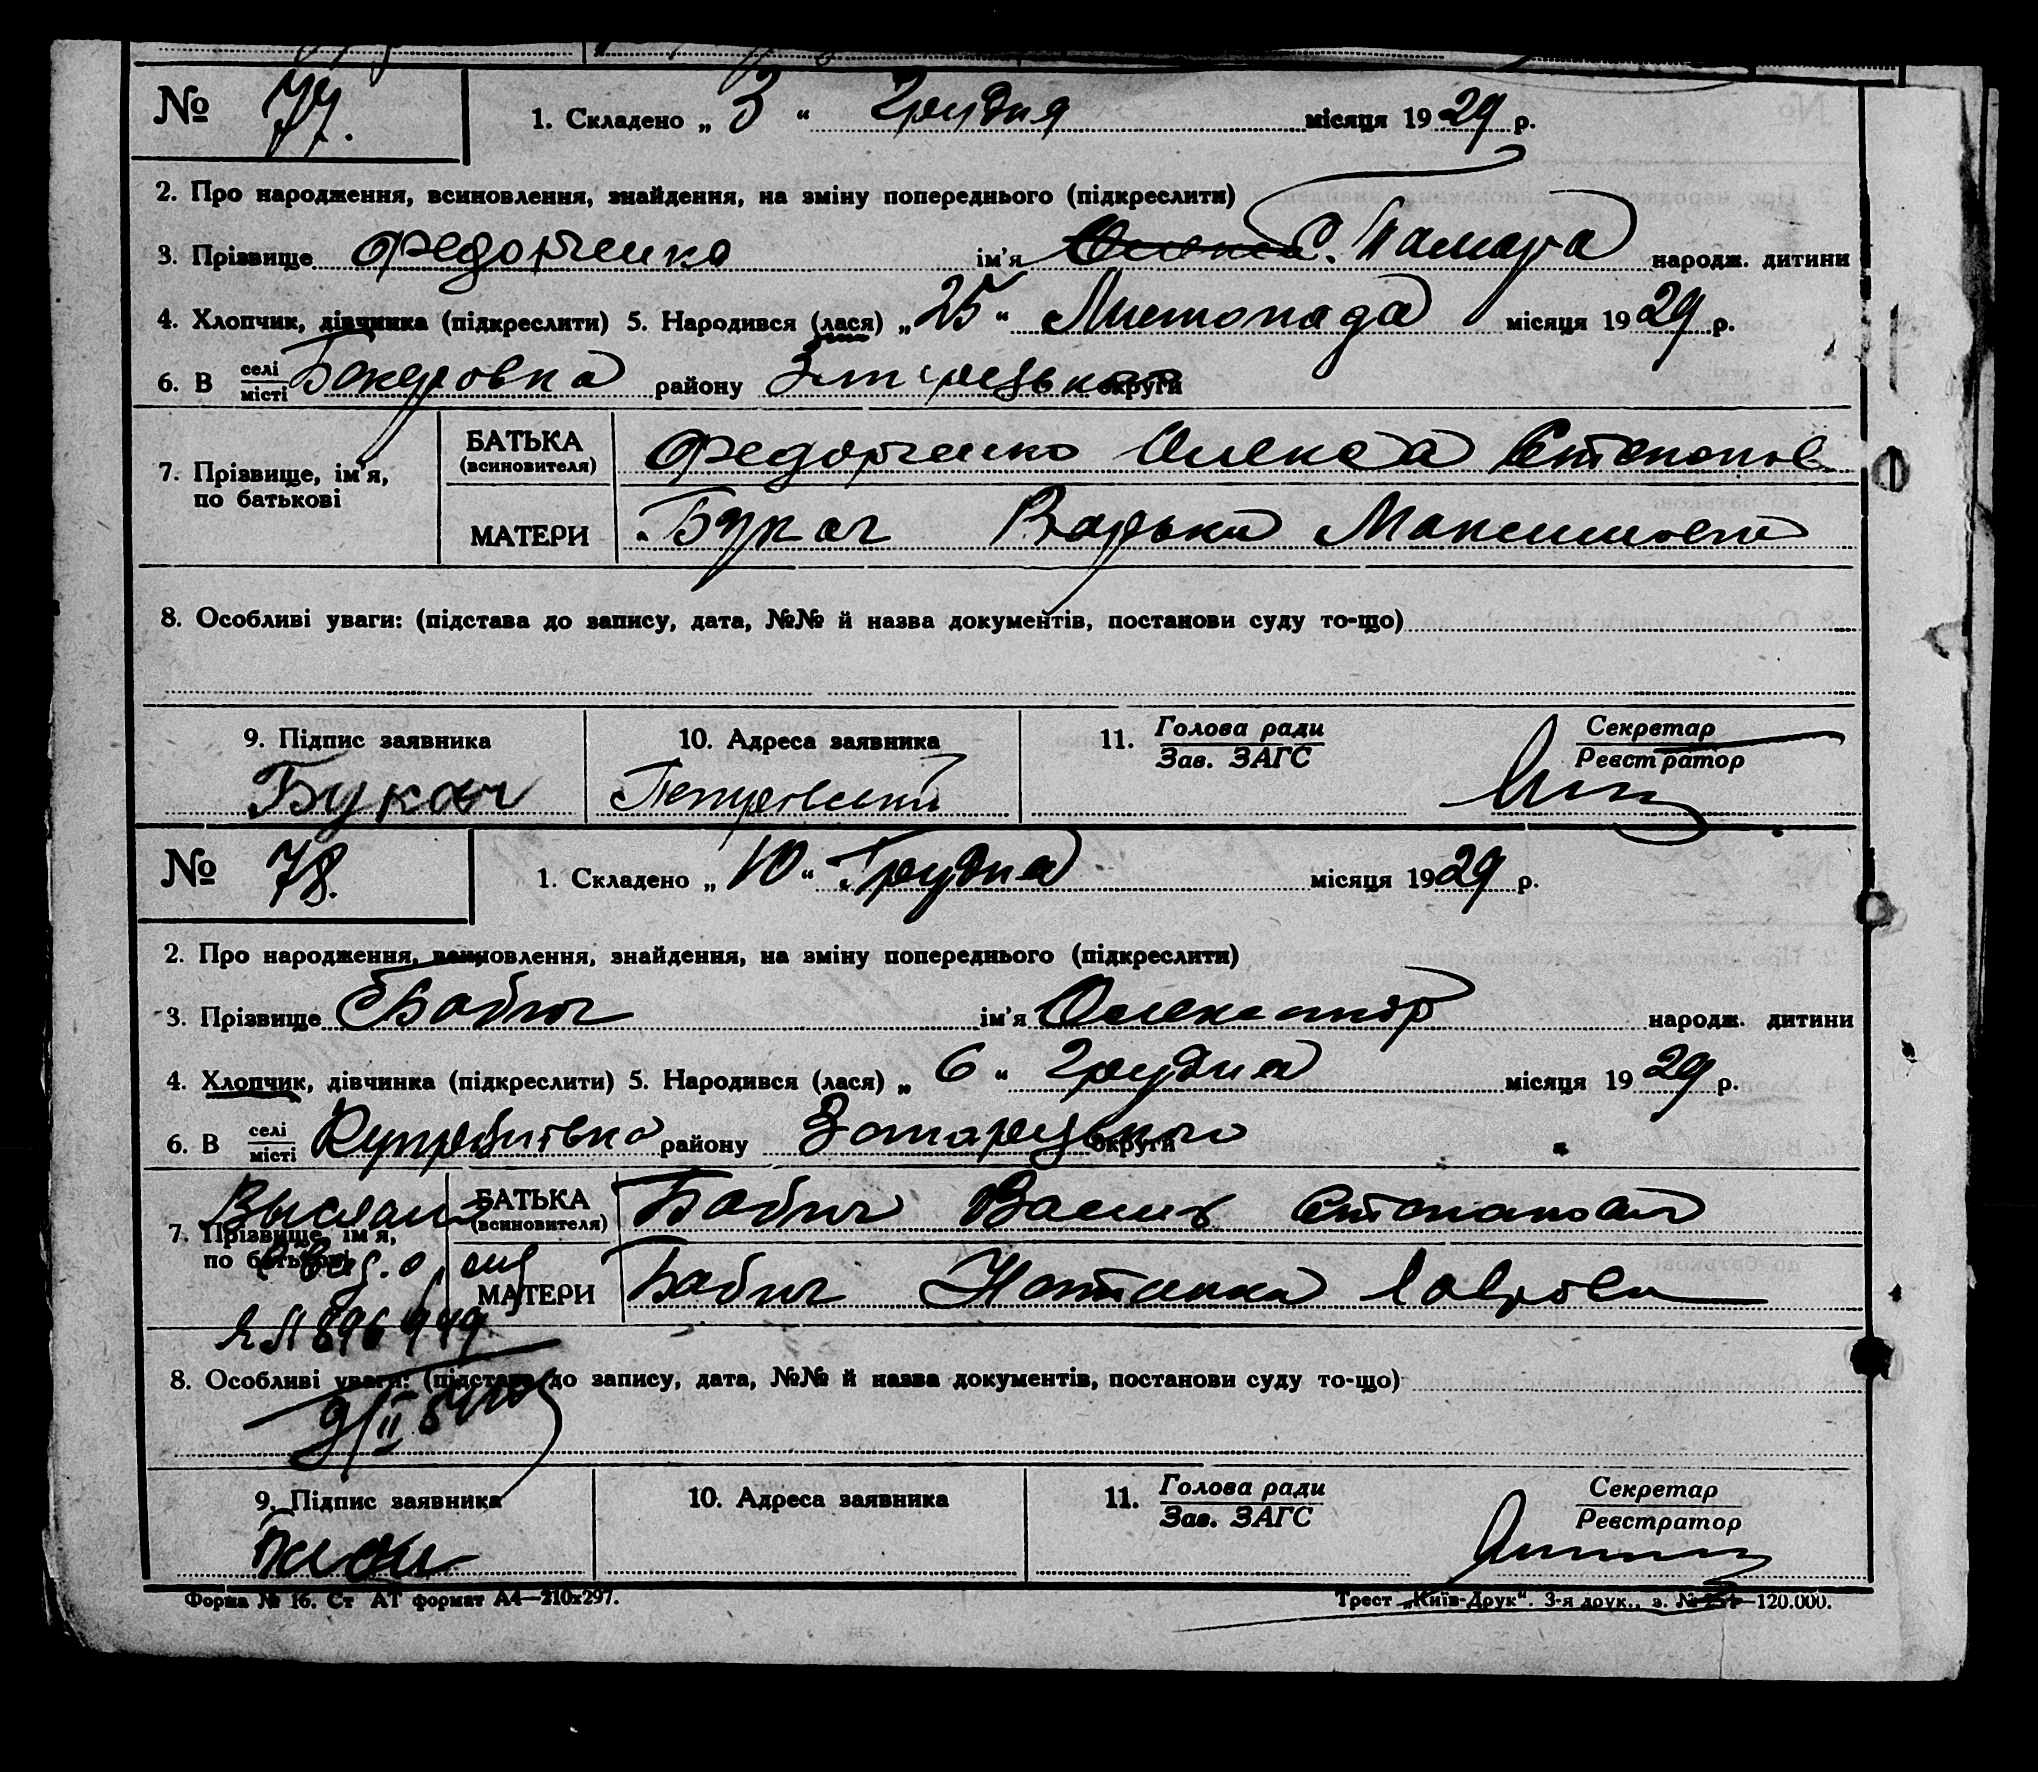 № 77. 1. Складено „ 3 “ Грудня місяця 1929 р.
2. Про народження, всиновлення, знайдення, на зміну попереднього (підкреслити)
3. Прізвище Федорченко ім'я Тамара народж. дитини
4. Хлопчик, дівчинка (підкреслити) 5. Народився (лася) „ 25 “ Листопада місяця 1929 р.
6. В селі/місті району округи
7. Прізвище, ім'я, по батькові
БАТЬКА (всиновителя) Федорченко Олекса Степанов
МАТЕРИ Букач Варька Максимовна
8. Особливі уваги: (підстава до запису, дата, №№ й назва документів, постанови суду то-що)
9. Підпис заявника 10. Адреса заявника 11. Голова ради/Зав. ЗАГС Секретар/Реєстратор
Букач Петровський
№ 78. 1. Складено „ 10 “ Грудня місяця 1929 р.
2. Про народження, всиновлення, знайдення, на зміну попереднього (підкреслити)
3. Прізвище Бабич ім'я Олександр народж. дитини
4. Хлопчик, дівчинка (підкреслити) 5. Народився (лася) „ 6 “ Грудня місяця 1929 р.
6. В селі/місті району округи
7. Прізвище, ім'я, по батькові
БАТЬКА (всиновителя) Бабич Василь Степанович
МАТЕРИ Бабич Наталка Лаврови
8. Особливі уваги: (підстава до запису, дата, №№ й назва документів, постанови суду то-що)
9. Підпис заявника 10. Адреса заявника 11. Голова ради/Зав. ЗАГС Секретар/Реєстратор
Форма № 16. Ст АТ формат А4—210х297. Трест „Київ-Друк“. 3-я друк., з. №—120.000.